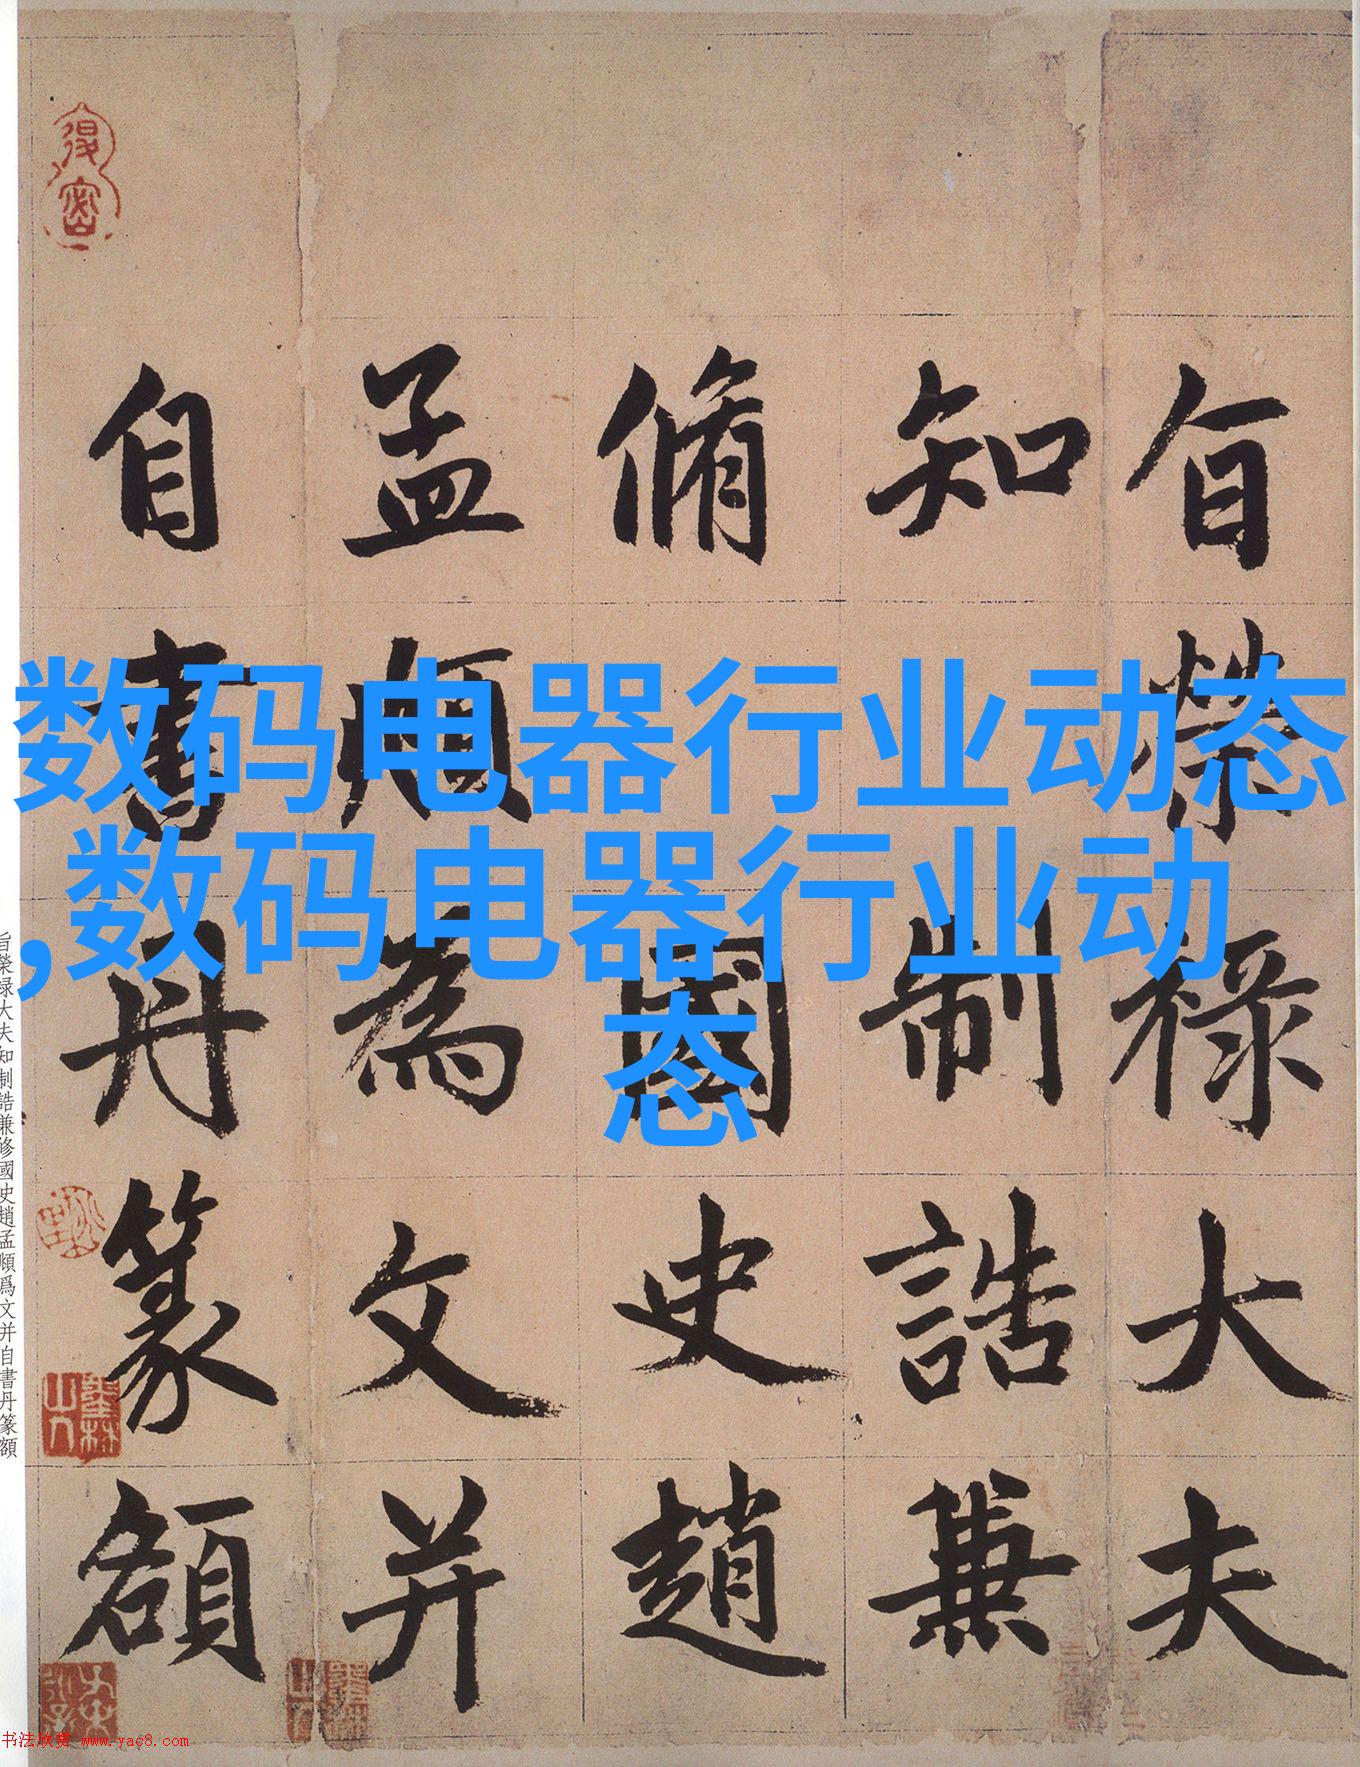 旨榮祿大夫
知制誥兼
脩國史趙
孟頫為文并
自書丹篆額
数码电器行业动态
,数码电器行业动
态
旨榮祿大夫知制誥兼修國史趙孟頫爲文并自書丹篆額
书法欣赏 www.yac8.com